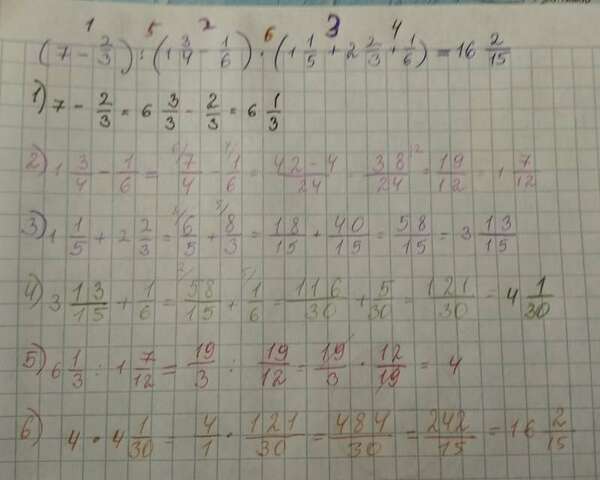 1 5 2 6 3 4
(7 - 2/3) : (1 3/4 - 1/6) · (1 1/5 + 2 2/3 + 1/6) = 16 2/15
1) 7 - 2/3 = 6 3/3 - 2/3 = 6 1/3
2) 1 3/4 - 1/6 = 7/4 - 1/6 = 42-4/24 = 38/24 = 19/12 = 1 7/12
3) 1 1/5 + 2 2/3 = 6/5 + 8/3 = 18/15 + 40/15 = 58/15 = 3 13/15
4) 3 13/15 + 1/6 = 58/15 + 1/6 = 116/30 + 5/30 = 121/30 = 4 1/30
5) 6 1/3 : 1 7/12 = 19/3 : 19/12 = 19/3 · 12/19 = 4
6) 4 · 4 1/30 = 4/1 · 121/30 = 484/30 = 242/15 = 16 2/15